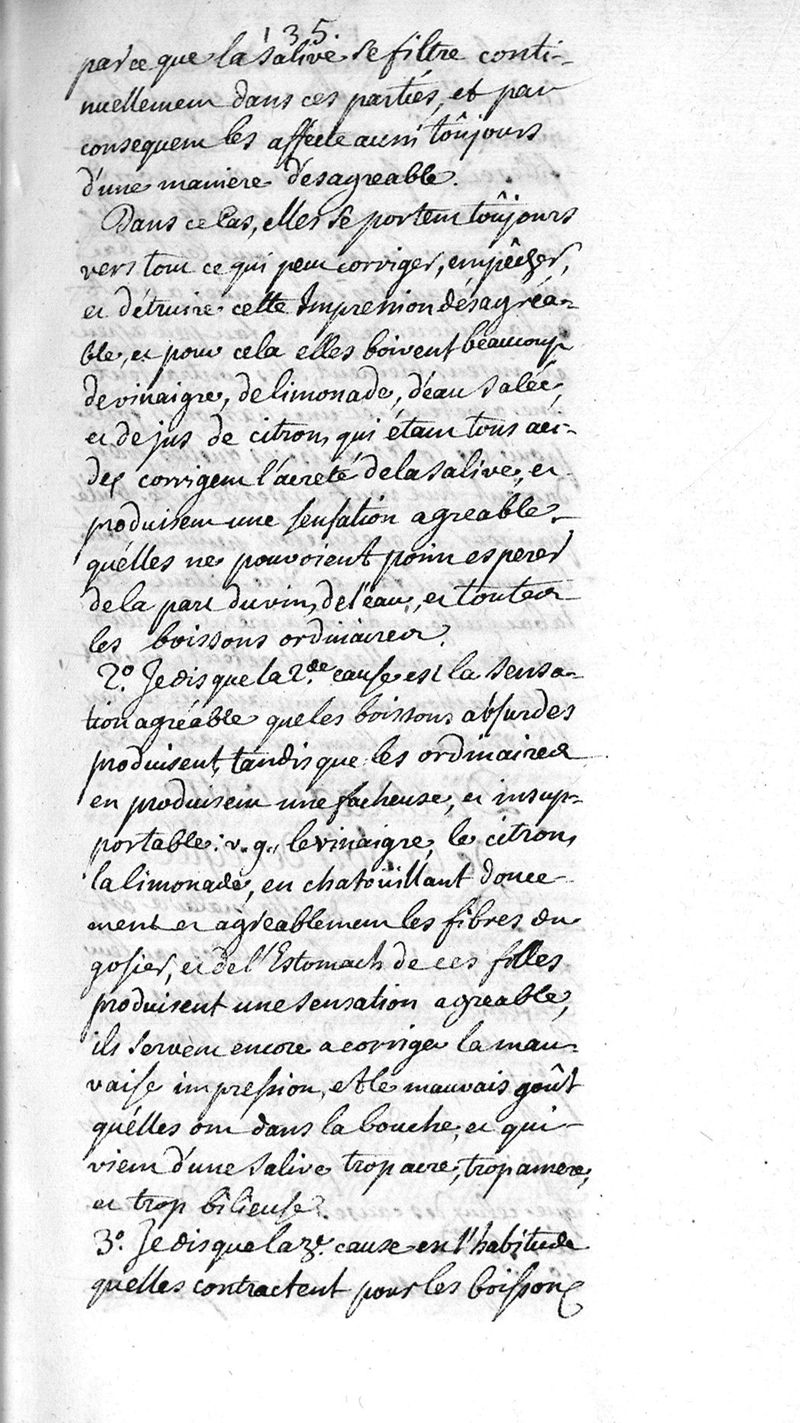 135.
parce que la salive se filtre conti-
nuellement dans ces partiés, et par
consequent les affecte aussi toûjours
d'une maniere désagreable.
Dans ce Cas, elles se portent toûjours
vers tout ce qui peut corriger, empêcher,
et détruire cette Impression désagréa-
ble, et pour cela elles boivent beaucoup
de vinaigre, de limonade, d'eau salée,
et de jus de citron, qui étant tous aci-
des corrigent l'acreté de la salive, et
produisent une sensation agreable
qu'élles ne pouvoient point esperer
de la part du vin, de l'eau, et toutes
les boissons ordinaires.
2º. Je dis que la 2.de cause est la sensa-
tion agréable que les boissons absurdes
produisent, tandis que les ordinaires
en produisent une facheuse, et insup-
portable: v. g., le vinaigre, le citron,
la limonade, en chatoüillant douce-
ment et agreablement les fibres du
gosier, et de l'Estomach de ces filles
produisent une sensation agreable,
ils servent encore a corriger la mau-
vaise impression, et le mauvais goût
qu'élles ont dans la bouche, et qui
vient d'une salive trop acre, trop amere,
et trop bilieuse.
3º. Je dis que la 3e. cause est l'habitude
quelles contractent pour les boissons